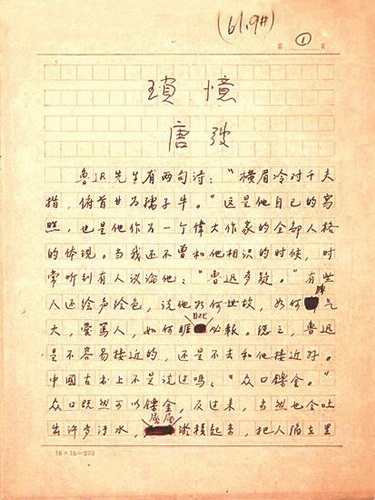 (61.9#)
第 ① 页
瑣憶
唐弢
鲁迅先生有两句诗:“横眉冷对千夫
指,俯首甘为孺子牛。”这是他自己的写
照,也是他作为一个伟大作家的全部人格
的体现。当我还不曾和他相识的时候,时
常听到有人议论他:“鲁迅多疑。”有些
人还绘声绘色,说他如何世故,如何脾气
大,爱骂人,如何睚眦必报。总之,鲁迅
是不容易接近的,还是不去和他接近好。
中国古书上不是说过吗:“众口铄金。”
众口既然可以铄金,反过来,当然也会吐
出许多污水,堆积起来,把人陷在里
18×15=270